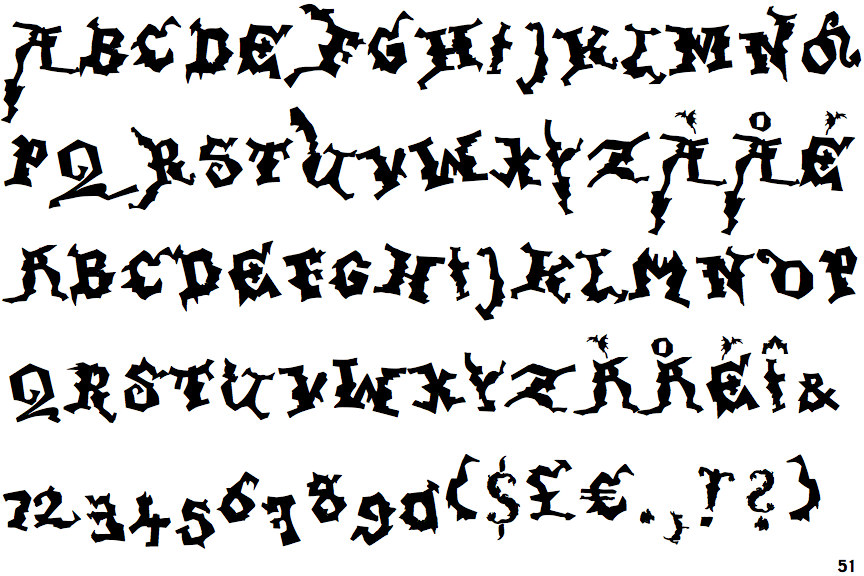 ABCDEFGHIJKLMNO
PQRSTUVWXYZÀÅÉ
ABCDEFGHIJKLMNOP
QRSTUVWXYZÀÅÉÎ&
1234567890($£€.,!?)
51